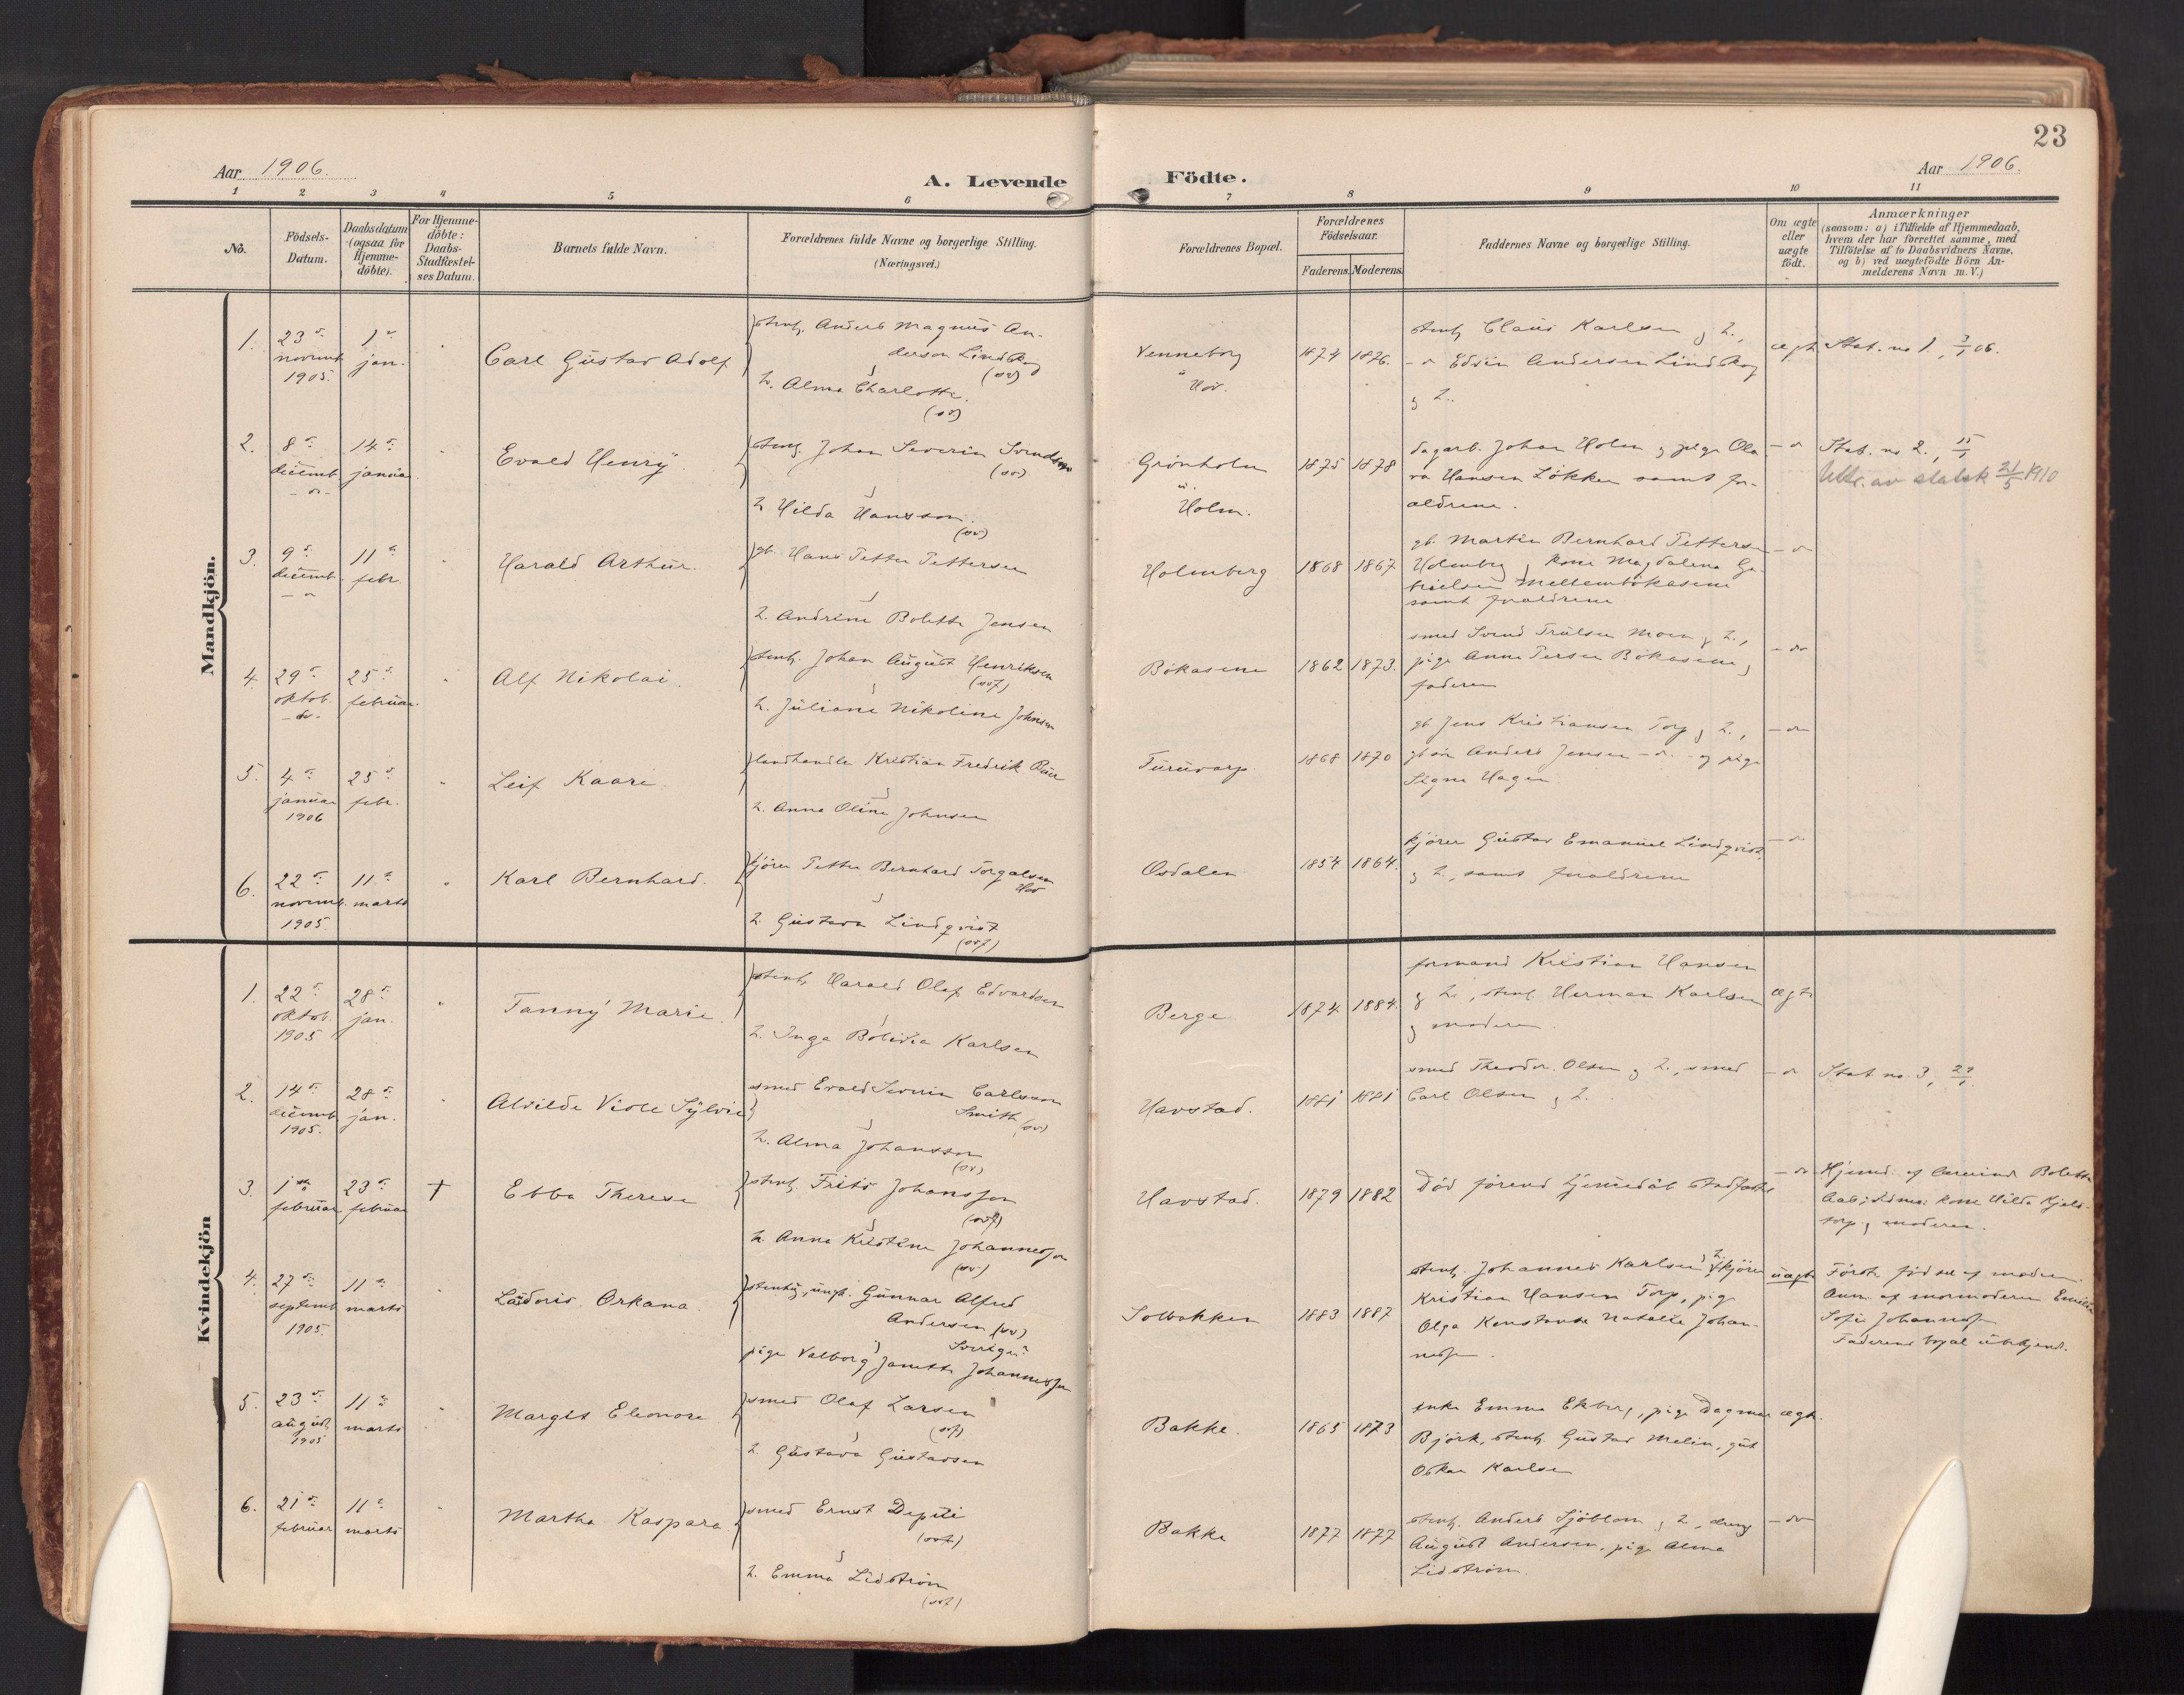 23
Aar 1906.
A. Levende Födte.
Aar 1906.
1 2 3 4 5 6 7 8 9 10 11
No.
Födsels-Datum.
Daabsdatum (ogsaa for Hjemme-döbte).
For Hjemme-döbte: Daabs-Stadfæstel-ses Datum.
Barnets fulde Navn.
Forældrenes fulde Navne og borgerlige Stilling. (Næringsvei.)
Forældrenes Bopæl.
Forældrenes Födselsaar.
Faderens. Moderens.
Faddernes Navne og borgerlige Stilling.
Om ægte eller uægte födt.
Anmærkninger
(saasom: a) i Tilfælde af Hjemmedaab, hvem der har forrettet samme, med Tilföielse af to Daabsvidners Navne, og b) ved uægtefödte Börn Anmelderens Navn m. V.)
Mandkjön.
1. 23 novemb. 1905. 1 jan.
Carl Gustav Adolf
stenh. Anders Magnus An-
derson Lindskog
(sv)
h. Alma Charlotte.
(sv)
Venneborg
u
Hov.
1874 1876.
stenh Claus Karlsen g h.,
Edvin Andersen Lindskog
g h.
ægte
Stat. no 1, 3/1 06.
2. 8 decemb. 14 januar
Evald Henry.
stenh. Johan Severin Svendsen
(sv)
h Hilda Hansson.
(sv)
Grönholm
u.
Holm.
1875 1878
dagarb. Johan Holm g pige Ola-
va Hansen Lökken samt for-
ældrene.
Stat. no 2., 15/1
Utskr. av statsk 21/5 1910
3. 9 decemb. 11 febr.
Harald Arthur.
gb. Hans Petter Pettersen
h. Andrine Bolette Jensen
Holmberg
1868 1867
gb. Martin Bernhard Pettersen
Holmberg g kone Magdalena Ga-
brielsen Mellembökasene
samt forældrene
4. 29 oktob. 25 februar.
Alf Nikolai.
stenh. Johan August Henriksen
h. Juliane Nikoline Johnsen
Bökasene
1862 1873.
smed Svend Trulsen Moen g h.,
pige Anne Persen Bökasene g
faderen
5. 4 januar 1906 25 febr.
Leif Kaare.
landhandler Kristian Fredrik
h. Anna Oline Johnsen
1868 1870
gb Jens Kristiansen Torp g h.,
Anders Jensen og pige
Signe Hagen
6. 22 novemb. 1905 11 marts
Karl Bernhard.
kjörer Petter Bernhard Torgalsen
h. Gustava Lindqvist
Osdalen
1854 1864.
kjörer Gustav Emanuel Lindqvist
g h., samt forældrene
Kvindekjön
1. 22 oktob. 1905 28 jan.
Fanny Marie.
stenh Harald Olaf Edvardsen
h. Inga Karlsen
Berge
1874. 1884.
formand Kristian Hansen
g h., stenh Herman Karlsen
g moderen.
ægte
2. 14 decemb. 1905. 28 jan.
Alvilde Viole Sylvie
smed Evald Severin Carlsson
Smith (sv)
h. Alma Johansson
(sv)
Havstad.
1881 1881
smed Theodor Olsen g h., smed
Carl Olsen g h.
Stat. no 3, 29/1
3. 1 februar 23 februar †
Ebba Therese
stenh. Frits Johansson
h. Anna Kristine Johannesson
(sv)
Havstad.
1879 1882
Död förend hjemmedåb stadfæstet
Hjemd. af Bolette
kone Hilda Kjels-
torp g moderen.
4. 27 septemb. 1905. 11 marts
Orkana.
stenhug, ungk. Gunnar Alfred
Andersen (sv)
Sverige
pige Valborg Janette Johannesson
Solbakken
1883 1887
stenh. Johannes Karlsen g h., kjörer
Kristian Hansen Torp, pige
Olga Konstanse Natalie Johan-
nessen.
uægte
Förste födsel af moderen.
Anm. af mormoderen Emilie
Sofie Johannessen
Faderens bopæl ubekjendt.
5. 23 august 1905 11 marts
Margit Eleonore
smed Olaf Larsen
h. Gustava Gustavsen
Bakke.
1865 1873
enke Emma Ekberg, pige Dagmar
Björk, stenh. Gustav Melin, gut
Oskar Karlsen
ægte.
6. 21 februar 11 marts
Martha Kaspara
smed Ernst
h. Emma Lidström
Bakke
1877 1877
stenh. Anders Sjöblom g h, dreng
August Andersen, pige Alma
Lidström.